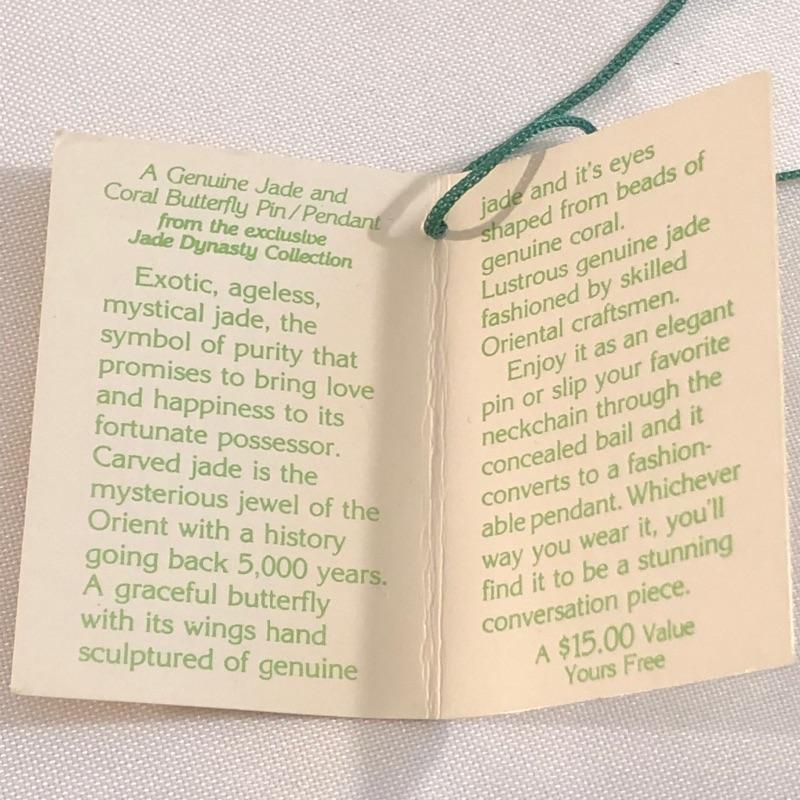 A Genuine Jade and
Coral Butterfly Pin/Pendant
from the exclusive
Jade Dynasty Collection
Exotic, ageless,
mystical jade, the
symbol of purity that
promises to bring love
and happiness to its
fortunate possessor.
Carved jade is the
mysterious jewel of the
Orient with a history
going back 5,000 years.
A graceful butterfly
with its wings hand
sculptured of genuine
jade and it's eyes
shaped from beads of
genuine coral.
Lustrous genuine jade
fashioned by skilled
Oriental craftsmen.
Enjoy it as an elegant
pin or slip your favorite
neckchain through the
concealed bail and it
converts to a fashion-
able pendant. Whichever
way you wear it, you'll
find it to be a stunning
conversation piece.
A $15.00 Value
Yours Free